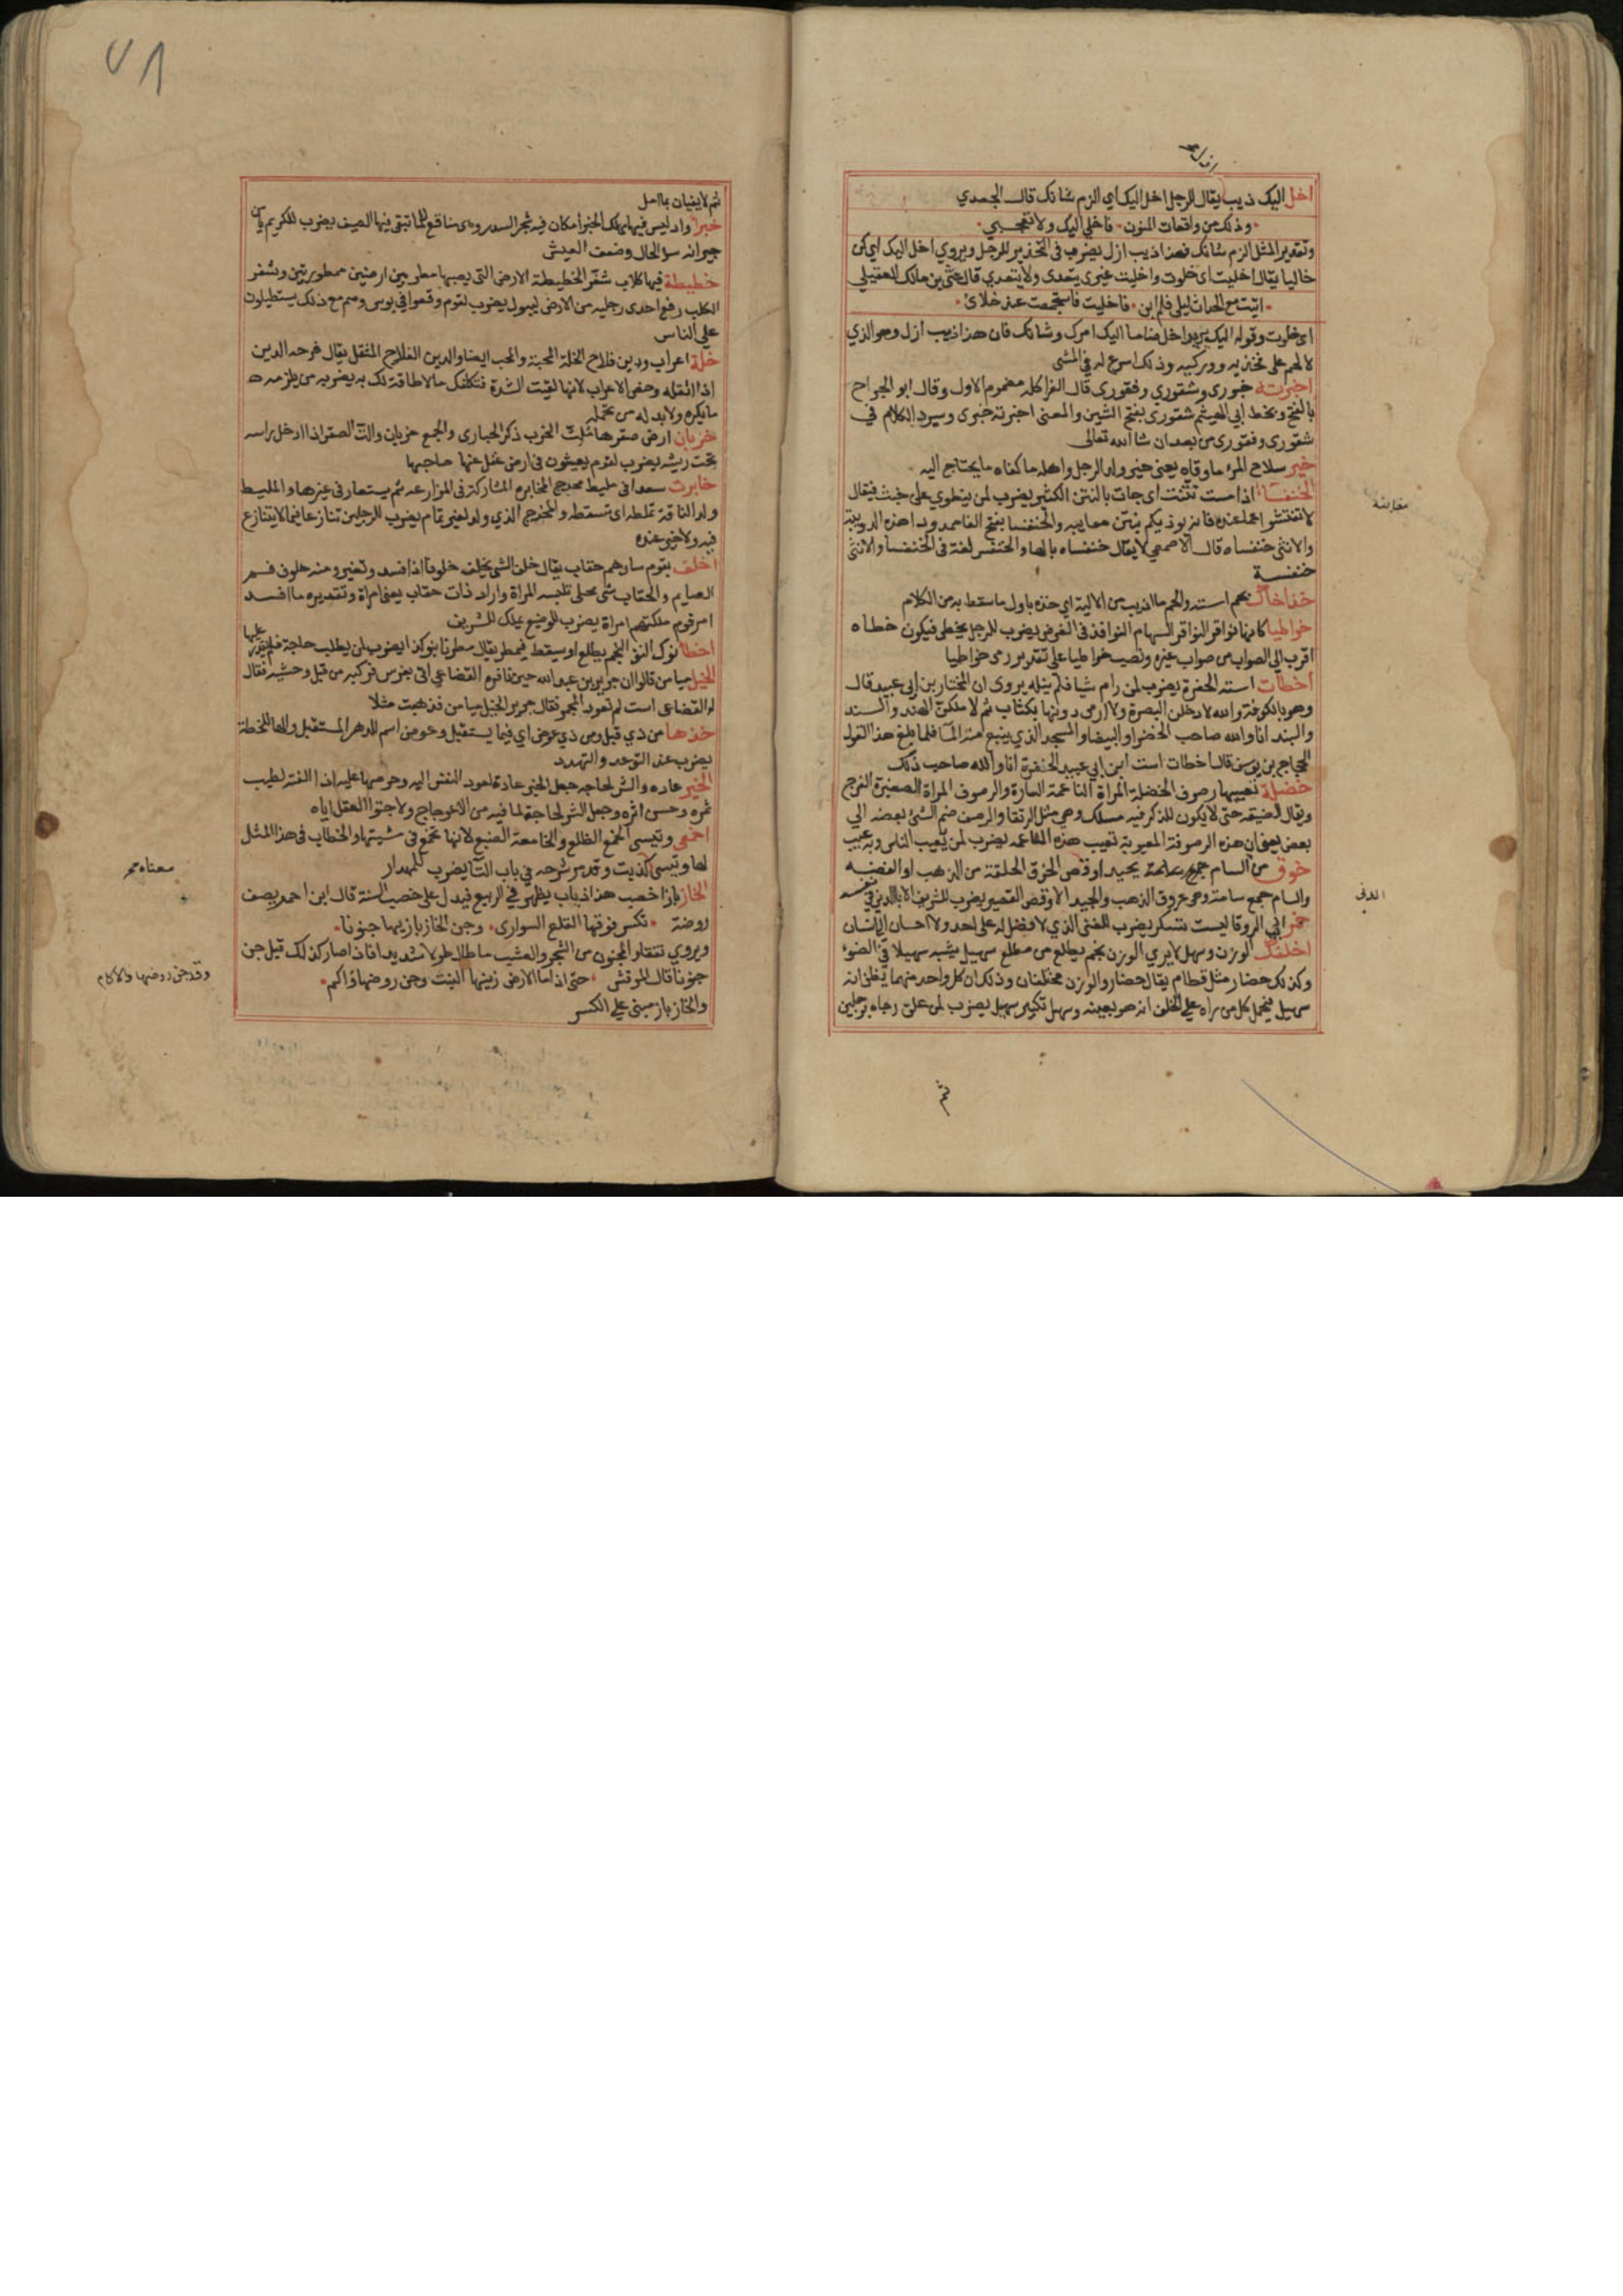 اخل اليك ذيب يقال للرجل اخل اليك اي الزم شانك قال الجعدي
وذلك من واقعات المنون فاخلي اليك ولا تعجبي
وتقدير المثل الزم شانك فهذا ذيب ازل يضرب في التحذير للرجل ويروي اخل اليك اي كن
خاليا يقال اخليت اي خلوت واخليت غيري يتعدى ولا يتعدي قال عتي بن مالك العقيلي
اتيت مع الحداث ليلي فلم ابن فاخليت فاستجمعت عند خلائ
اي خلوت وقوله اليك يريد اخل ضاما اليك امرك وشانك فان هذا ذيب ازل وهو الذي
لا لحم على فخذيه ووركيه وذلك اسرع له في المشي
اخبرته خبوري وشقوري وفقوري قال الفرا كله مضموم الاول وقال ابو الجراح
بالفتح وبخط ابي الهيثم شقوري بفتح الشين والمعنى اخبرته خبري وسيرد الكلام في
شقوري وفقوري من بعد ان شا الله تعالى
خير سلاح المرء ما وقاه يعني خير واد الرجل واهله ما كفاه ما يحتاج اليه
الخنفساء اذا مست نتنت اي جات بالنتن الكثير يضرب لمن ينطوي على خبث فيقال
لا تفتشوا عما عنده فانه يوذيكم بنتن معايبه والخنفسا بفتح الفا ممدودا هذه الدويبة
والانثى خنفساه قال الاصمعي لا يقال خنفساه بالها والخنفس لغة في الخنفسا والانثى
خنفسة
خواطيا كانها نواقر النواقر السهام النوافذ في الغرض يضرب للرجل يخطي فيكون خطاه
اقرب الي الصواب من صواب غيره ونصب خواطيا على تقدير رمى خواطيا
اخطات استه الحفرة يضرب لمن رام شيا فلم ينله يروى ان المختار بن ابي عبيد قال
وهو بالكوفة والله لادخلن البصرة ولا ارمى دونها بكثاب ثم لاملكن الهند والسند
والبند انا والله صاحب الخضرا والبيضا والمسجد الذي ينبع منه الما فلما بلغ هذا القول
الحجاج بن يوسف قال اخطات است ابن ابي عبيد الحفرة انا والله صاحب ذلك
خضلة تعيبها رصوف الخضلة المراة الناعمة التارة والرصوف المراة الصغيرة الفرج
ويقال الضيقة حتى لا يكون للذكر فيه مسلك وهي مثل الرتقا والرصف ضم الشئ بعضه الي
بعض يعني ان هذه الرصوفة المعيوبة تعيب هذه الناعمة يضرب لمن يعيب الناس وبه عيب
خوق من السام بجيد اوقص الخوق الحلقة من الذهب او الفضه
والسام جمع سامة وهو عروق الذهب والجيد الاوقص القصير يضرب للشريف الابا الدني في نفسه
خمر ابي الروقا ليست تسكر يضرب للغني الذي لا فضل له على احد ولا احسان الى انسان
اخلفك الوزن وسهل لا يري الوزن نجم يطلع من مطلع سهيل يشبه سهيلا في الضوء
وكذلك حضار مثل قطام يقال حضار والوزن محلفان وذلك ان كل واحد منهما يظن انه
سهيل فيحمل كل من راه على الحلف انه هو بعينه وسهل تكبير سهيل يضرب لمن علق رجاه برجلين
ثم
معاينة
الدنى
٧٨
ثم لا يفيان بما امل
خبراء واد ليس فيها مهلك الخبرا مكان فيه شجر السدر وهي مناقع للما تبقى فيها الصيف يضرب للكريم يامن
جيرانه سو الحال وضعف العيش
خطيطة فيها كلاب شغر الخطيطة الارض التي لم يصبها مطر بين ارضين ممطورتين وشغر
الكلب رفع احدى رجليه من الارض ليبول يضرب لقوم وقعوا في بوس وهم مع ذلك يستطيلون
على الناس
خلة اعراب ودين فلاح الخلة المحبة والمحب ايضا والدين الفلاح المثقل يقال فدحه الدين
اذا اثقله وخص الاعراب لانها لقيت الشدة فتكلفك ما لا طاقة لك به يضرب من يلزمه
ما يكره ولا بد له من تحمله
خربان ارض صقرها ملث الخرب ذكر الحبارى والجمع خربان والث الصقر اذا ادخل راسه
تحت ريشه يضرب لقوم يعيشون في ارض غفل عنها صاحبها
خابرت سعدا في مليط مخدج المخابرة المشاركة في المزارعة ثم يستعار في غيرها والمليط
ولد الناقة تملطه اي تسقطه والمخدج الذي ولد لغير تمام يضرب للرجلين تنازعا فيما لا يتنازع
فيه ولا خير عنده
اخلف بقوم سادهم حقاب يقال خلف الشي يخلف خلوفا اذا فسد وتغير ومنه خلوف فم
الصايم والحقاب شي محلى تلبسه المراة واراد ذات حقاب يعني امراة وتقديره ما افسد
امر قوم ملكتهم امراة يضرب للوضيع يملك للشريف
اخطا نوك النو النجم يطلع او يسقط فيمطر يقال مطرنا بنو كذا يضرب لمن يطلب حاجة فلم يقدر عليها
الخيل ميامن قالوا ان جرير بن عبد الله حين نافره القضاعي اتى بفرس فركبه من قبل وحشيه فقال
له القضاعي است لم تعود المجمر فقال جرير الخيل ميامن فذهبت مثلا
خذها من ذي قبل ومن ذي عوض اي فيما يستقبل وعوض اسم للدهر المستقبل والها للخطة
يضرب عند التوعد والتهدد
الخير عاده والشر لجاجه جعل الخير عادة لعود النفس اليه وحرصها عليه اذا الفته لطيب
ثمره وحسن اثره وجعل الشر لجاجة لما فيه من الاعوجاج ولاجتوا العقل اياه
اخمعي وتيسي الخمع الظلع والخامعة الضبع لانها تخمع في مشيتها والخطاب في هذا المثل
لها وتيسي كذبت وقد مر شرحه في باب التا يضرب للمهذار
الخازباز اخصب هذا ذباب يظهر في الربيع فيدل على خصب السنة قال ابن احمر يصف
روضة تكسر فوقها القلع السوارى وجن الخازباز بها جنونا
ويروي تفقا والمجنون من الشجر والعشب ما طال طولا شديدا فاذا صار كذلك قيل جن
جنونا قال المرقش حتى اذا ما الارض زينها النبت وجن روضها واكم
والخازباز مبني علي الكسر
معناه مر
وقد جن روضها والاكام